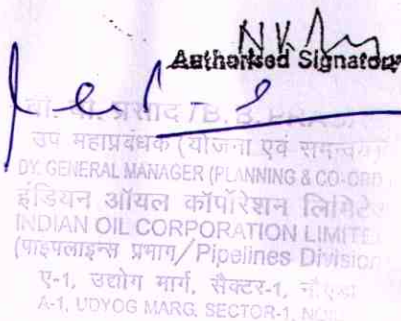 Authorised Signatory
प्रसाद / B. B. PRASAD
उप महाप्रबंधक (योजना एवं समन्वय)
DY. GENERAL MANAGER (PLANNING & CO-ORD
इंडियन ऑयल कॉर्पोरेशन लिमिटेड
INDIAN OIL CORPORATION LIMITE
(पाइपलाइन्स प्रभाग/Pipelines Division
ए-1, उद्योग मार्ग, सैक्टर-1, नौएडा
A-1, UDYOG MARG, SECTOR-1, NOI